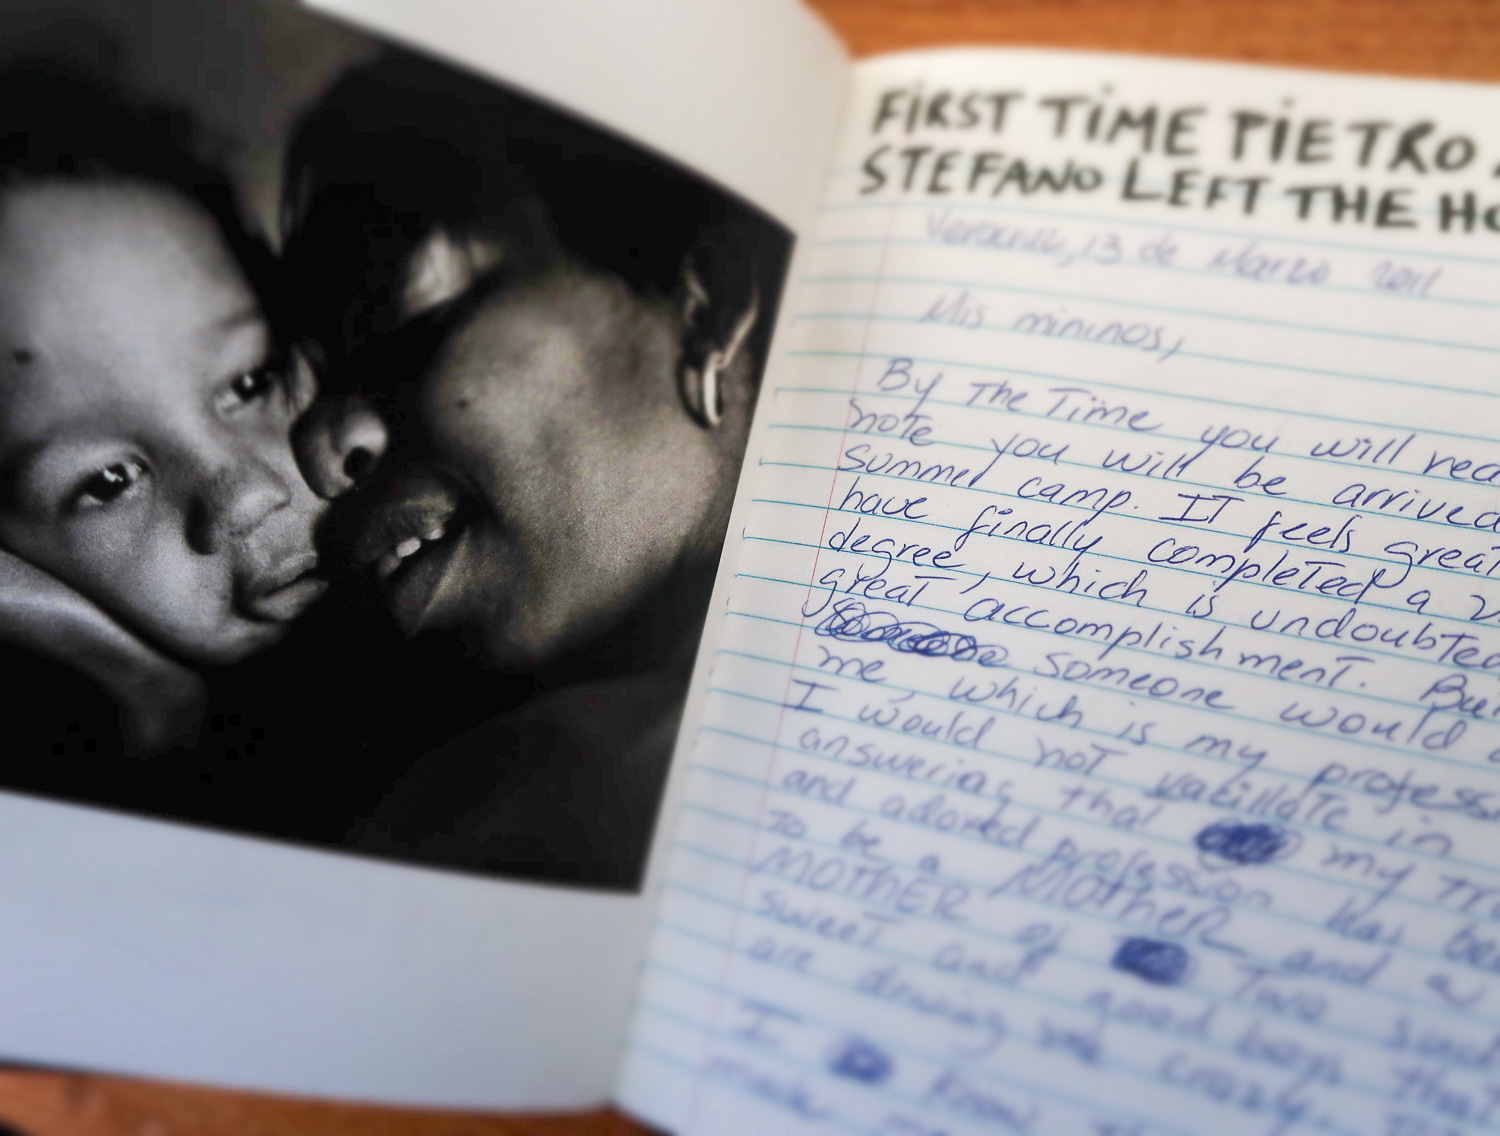 FIRST TIME PIETRO
STEFANO LEFT THE
Veracruz, 13 de Marzo 2011
Mis mininos,
By the Time you will
note you will be arrived
summer camp. IT feels great
have finally completed a
degree, which is
great accomplishment.
someone would
me, which is my
I would not vacillate in
answering that my
and adored profession has
to be a MOTHER and a
MOTHER of Two such
sweet and good boys that
are driving me crazy.
I know
made me